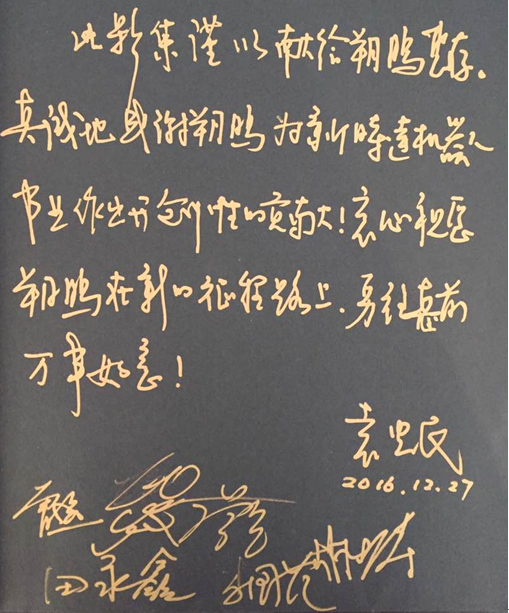 此影集谨以献给朔鹏惠存。
真诚地感谢朔鹏为新时达机器人
事业作出开创性的贡献！衷心祝愿
朔鹏在新的征程路上，勇往直前
万事如意！
袁忠民
2016.12.27
田永鑫